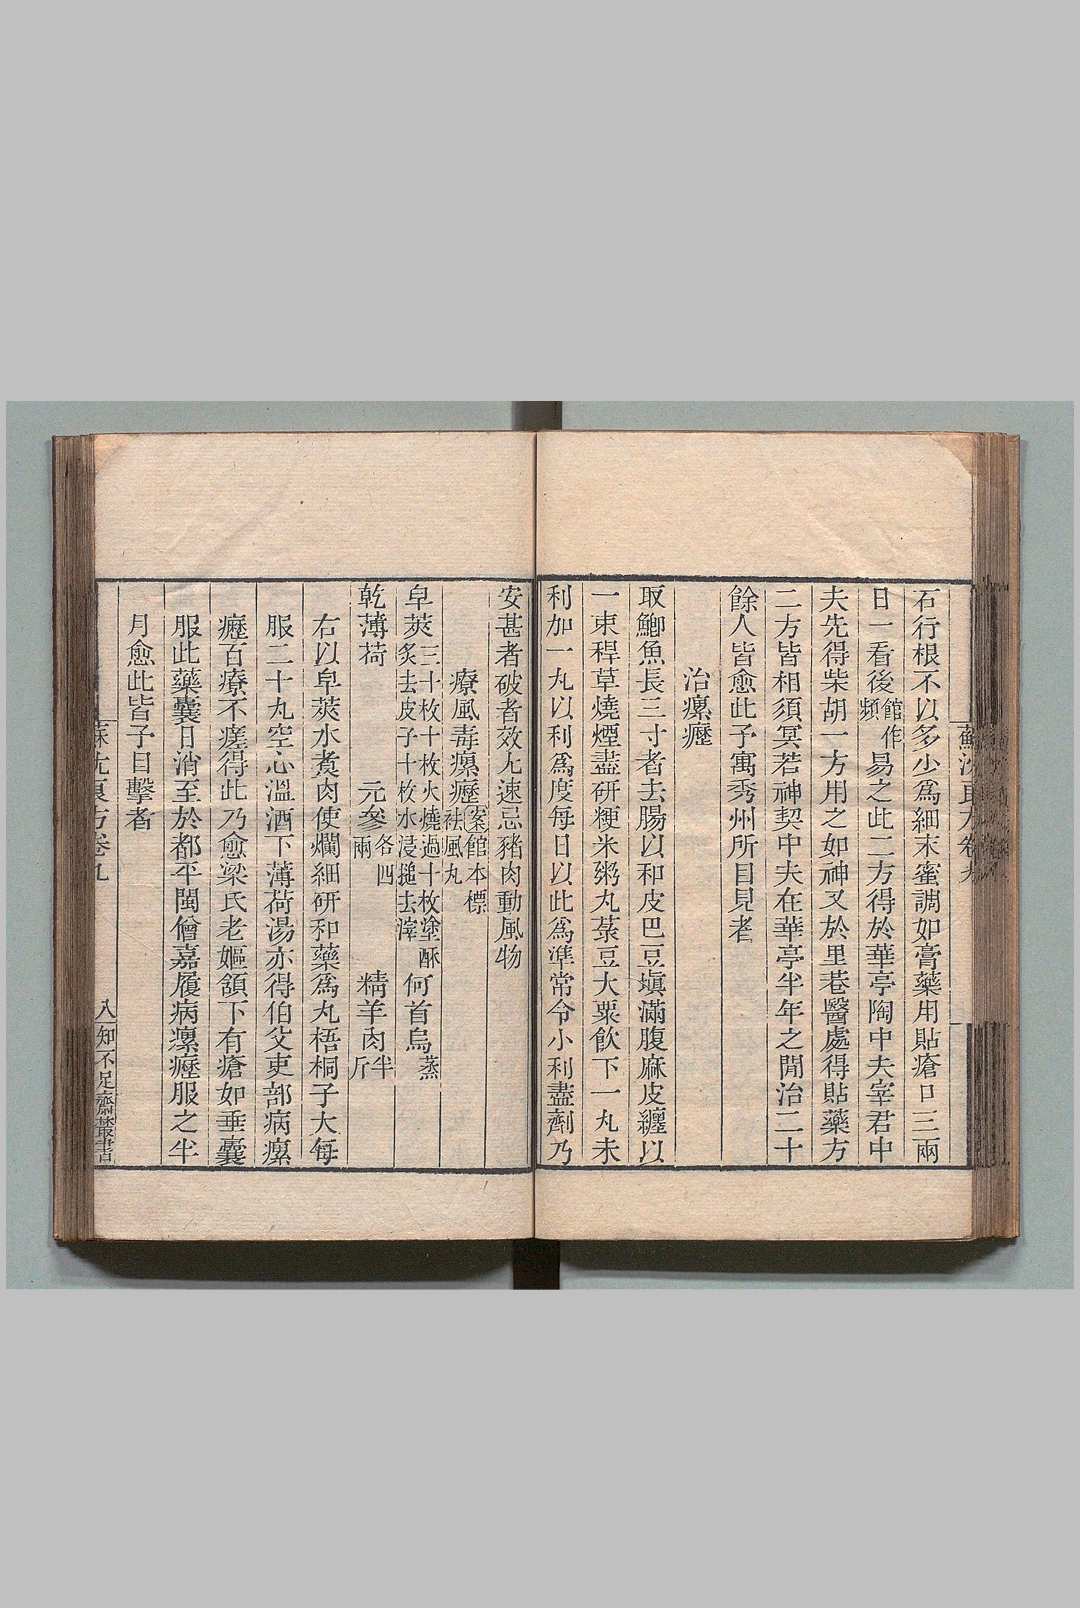 石行根不以多少為細末蜜調如膏藥用貼瘡口三兩
日一看後館作頻易之此二方得於華亭陶中夫宰君中
夫先得柴胡一方用之如神又於里巷醫處得貼藥方
二方皆相須冥若神契中夫在華亭半年之間治二十
餘人皆愈此予寓秀州所目見者
治瘰癧
取鯽魚長三寸者去腸以和皮巴豆塡滿腹麻皮纏以
一束稈草燒煙盡研粳米粥丸菉豆大粟飲下一丸未
利加一丸以利為度每日以此為準常令小利盡劑乃
安甚者破者效尤速忌豬肉動風物
療風毒瘰癧案館本標祛風丸
皁莢三十枚十枚火燒過十枚塗酥炙去皮子十枚水浸搥去滓 何首烏蒸
乾薄荷 元參各四兩 精羊肉半斤
右以皁莢水煑肉使爛細研和藥為丸梧桐子大每
服二十丸空心溫酒下薄荷湯亦得伯父吏部病瘰
癧百療不瘥得此乃愈梁氏老嫗頷下有瘡如垂囊
服此藥囊日消至於都平閩僧嘉履病瘰癧服之半
月愈此皆予目擊者
蘇沈良方卷九
八
知不足齋叢書